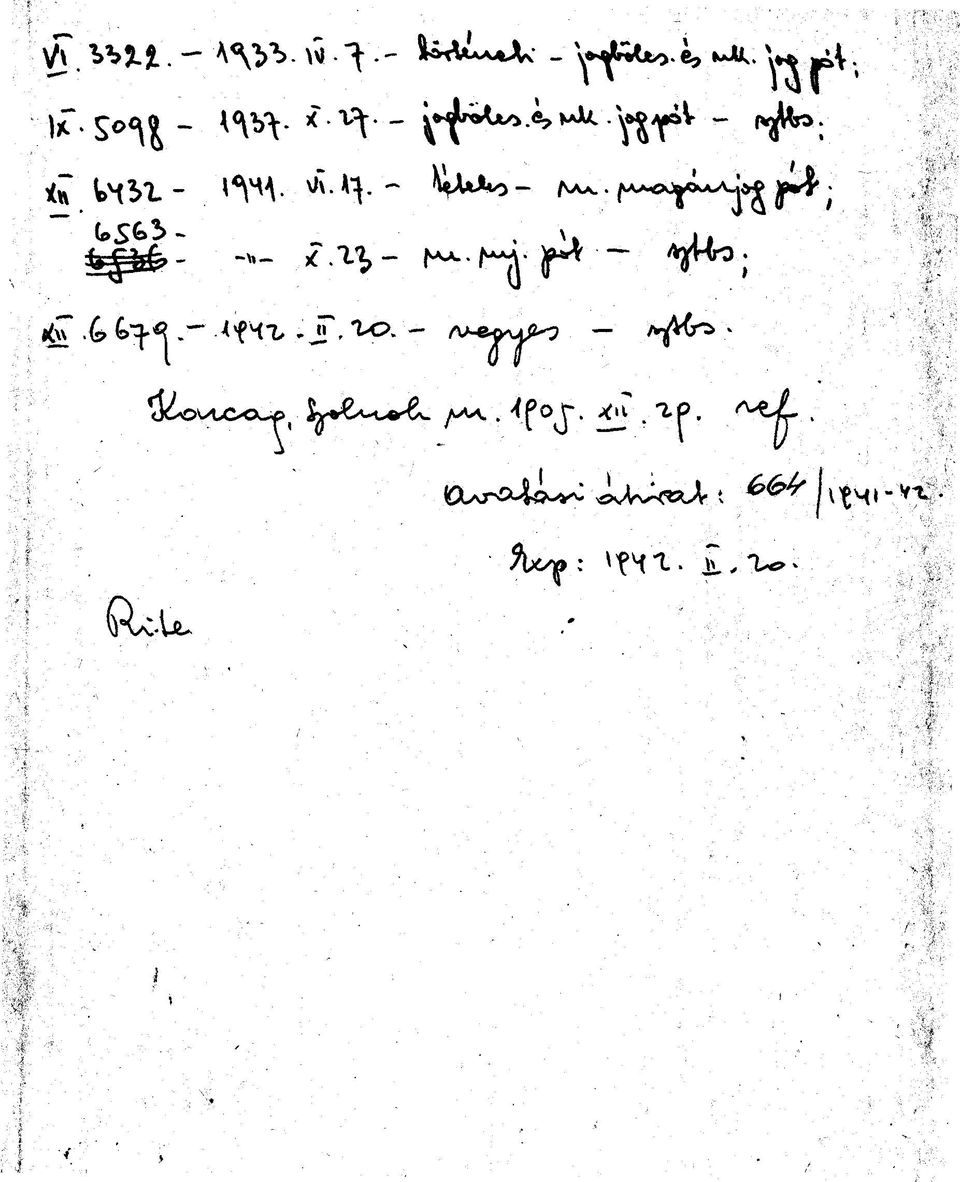 VI. 3322. – 1933. IV. 7. – történeti – jogbölcs. és nk. jog pót;
IX. 5098 – 1937. X. 27. – jogbölcs. és nk. jog pót – sztbs;
XII. 6432 – 1941. VI. 17. – tételes – m. magánjog pót;
6563 –
6536 – –"– X. 23 – m. mj. pót – sztbs;
XII. 6679. – 1942. II. 20. – vegyes – sztbs.
Karcag, Szolnok m. 1905. XII. 29. ref.
avatási átirat: 664/1941-42.
Exp: 1942. II. 20.
Rite